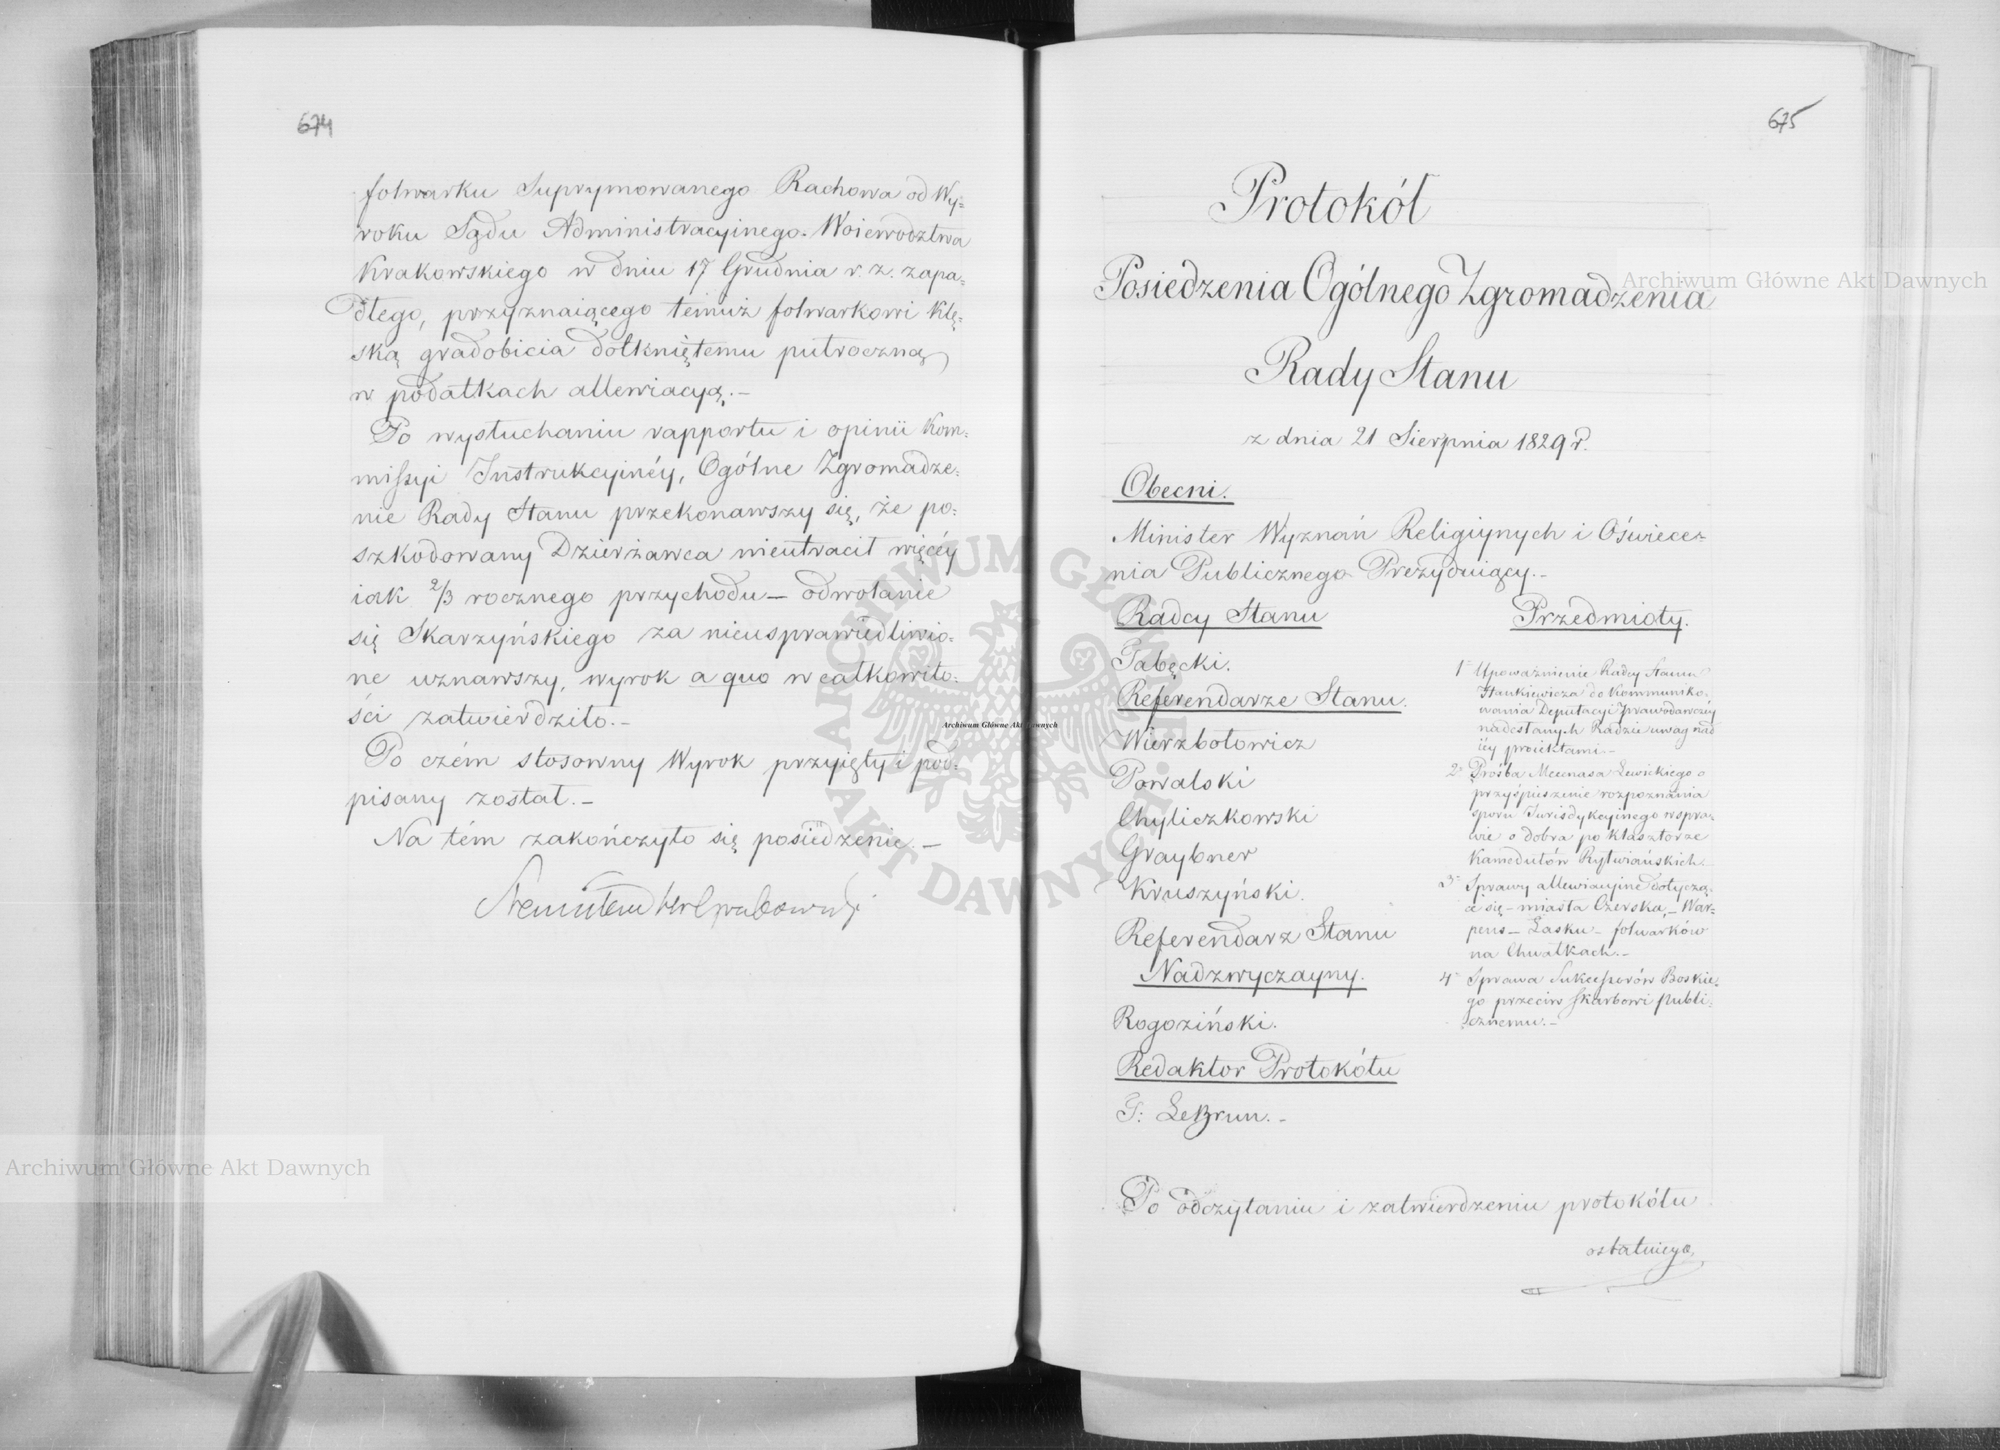 674
folwarku Suprymowanego Rachowa od Wy=
roku Sądu Administracyinego Woiewodztwa
Krakowskiego w dniu 17 Grudnia r. z. zapa=
dłego, przyznaiącego temuż folwarkowi klę=
ską gradobicia dotkniętemu półroczną
w podatkach allewiacyą.—
Po wysłuchaniu rapportu i opinii Kom=
missyi Instrukcyinéy, Ogólne Zgromadze=
nie Rady Stanu przekonawszy się, że po=
szkodowany Dzierżawca nieutracił więcéy
iak 2/3 rocznego przychodu — odwołanie
się Skarzyńskiego za nieusprawiedliwio=
ne uznawszy, wyrok a quo w całkowito=
ści zatwierdziło.—
Po czém stosowny Wyrok przyięty i pod=
pisany został.—
Na tém zakończyło się posiedzenie.—
675
Protokół
Posiedzenia Ogólnego Zgromadzenia
Rady Stanu
z dnia 21 Sierpnia 1829 r.
Obecni.
Minister Wyznań Religiynych i Oświece=
nia Publicznego Prezyduiący.—
Radcy Stanu
Tabęcki.
Referendarze Stanu.
Wierzbołowicz
Powalski
Chyliczkowski
Graybner
Kruszyński.
Referendarz Stanu
Nadzwyczayny.
Rogoziński.
Redaktor Protokółu
LeBrun.—
Przedmioty.
1° Upoważnienie Radcy Stanu
Stankiewicza do Kommuniko=
wania Deputacyi Prawodawczéy
nadesłanych Radzie uwag nad
iéy proiektami.—
2° Prośba Mecenasa Lewickiego o
przyśpieszenie rozpoznania
sporu Jurisdykcyinego w spra=
wie o dobra po klasztorze
Kamedułów Rytwiańskich.
3° Sprawy allewiacyine dotyczą=
ce się — miasta Czerska, — War=
pens — Łasku — folwarków
na Chwałkach.—
4° Sprawa Sukcessorów Boskie=
go przeciw skarbowi publi=
cznemu.—
Po odczytaniu i zatwierdzeniu protokółu
ostatniego,
Archiwum Główne Akt Dawnych
Archiwum Główne Akt Dawnych
Archiwum Główne Akt Dawnych
ARCHIWUM GŁÓWNE AKT DAWNYCH